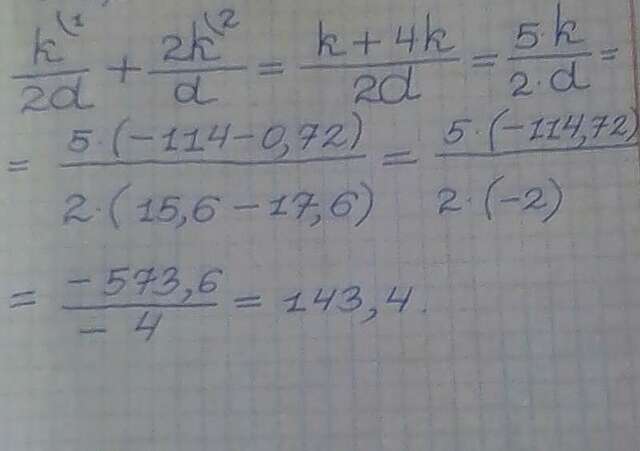 k^(1/2d + 2k^(2/d = k+4k/2d = 5·k/2·d =
= 5·(-114-0,72)/2·(15,6-17,6) = 5·(-114,72)/2·(-2)
= -573,6/-4 = 143,4.